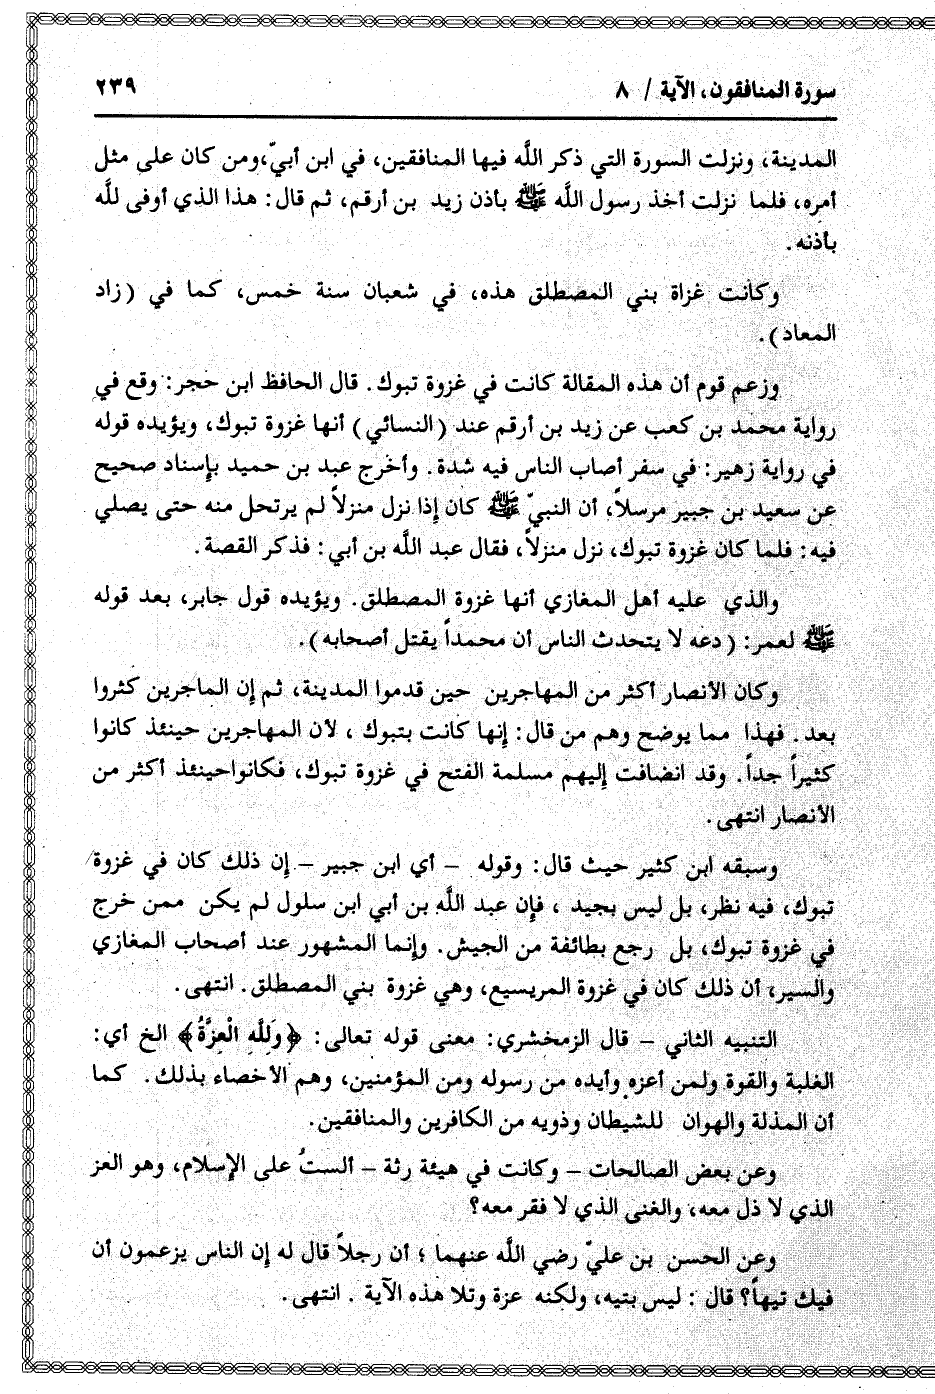 سورة المنافقون، الآية / ٨
٢٣٩
المدينة، ونزلت السورة التي ذكر اللَّه فيها المنافقين، في ابن أبيّ،ومن كان على مثل
أمره، فلما نزلت أخذ رسول اللَّه ﷺ بأذن زيد بن أرقم، ثم قال: هذا الذي أوفى لله
بأذنه.
وكانت غزاة بني المصطلق هذه، في شعبان سنة خمس، كما في (زاد
المعاد).
وزعم قوم أن هذه المقالة كانت في غزوة تبوك. قال الحافظ ابن حجر: وقع في
رواية محمد بن كعب عن زيد بن أرقم عند (النسائي) أنها غزوة تبوك، ويؤيده قوله
في رواية زهير: في سفر أصاب الناس فيه شدة. وأخرج عبد بن حميد بإسناد صحيح
عن سعيد بن جبير مرسلاً، أن النبيّ ﷺ كان إذا نزل منزلاً لم يرتحل منه حتى يصلي
فيه: فلما كان غزوة تبوك، نزل منزلاً، فقال عبد اللَّه بن أبي: فذكر القصة.
والذي عليه أهل المغازي أنها غزوة المصطلق. ويؤيده قول جابر، بعد قوله
ﷺ لعمر: (دعه لا يتحدث الناس أن محمداً يقتل أصحابه).
وكان الأنصار أكثر من المهاجرين حين قدموا المدينة، ثم إن الماجرين كثروا
بعد. فهذا مما يوضح وهم من قال: إنها كانت بتبوك ، لأن المهاجرين حينئذ كانوا
كثيراً جداً. وقد انضافت إليهم مسلمة الفتح في غزوة تبوك، فكانواحينئذ أكثر من
الأنصار انتهى.
وسبقه ابن كثير حيث قال: وقوله – أي ابن جبير – إن ذلك كان في غزوة
تبوك، فيه نظر، بل ليس بجيد ، فإن عبد اللَّه بن أبي ابن سلول لم يكن ممن خرج
في غزوة تبوك، بل رجع بطائفة من الجيش. وإنما المشهور عند أصحاب المغازي
والسير، أن ذلك كان في غزوة المريسيع، وهي غزوة بني المصطلق. انتهى.
التنبيه الثاني – قال الزمخشري: معنى قوله تعالى: ﴿وَلِلَّهِ الْعِزَّةُ﴾ الخ أي:
الغلبة والقوة ولمن أعزه وأيده من رسوله ومن المؤمنين، وهم الأخصاء بذلك. كما
أن المذلة والهوان للشيطان وذويه من الكافرين والمنافقين.
وعن بعض الصالحات – وكانت في هيئة رثة – ألستُ على الإسلام، وهو العز
الذي لا ذل معه، والغنى الذي لا فقر معه؟
وعن الحسن بن عليّ رضي اللَّه عنهما ؛ أن رجلاً قال له إن الناس يزعمون أن
فيك تيهاً؟ قال : ليس بتيه، ولكنه عزة وتلا هذه الآية . انتهى.